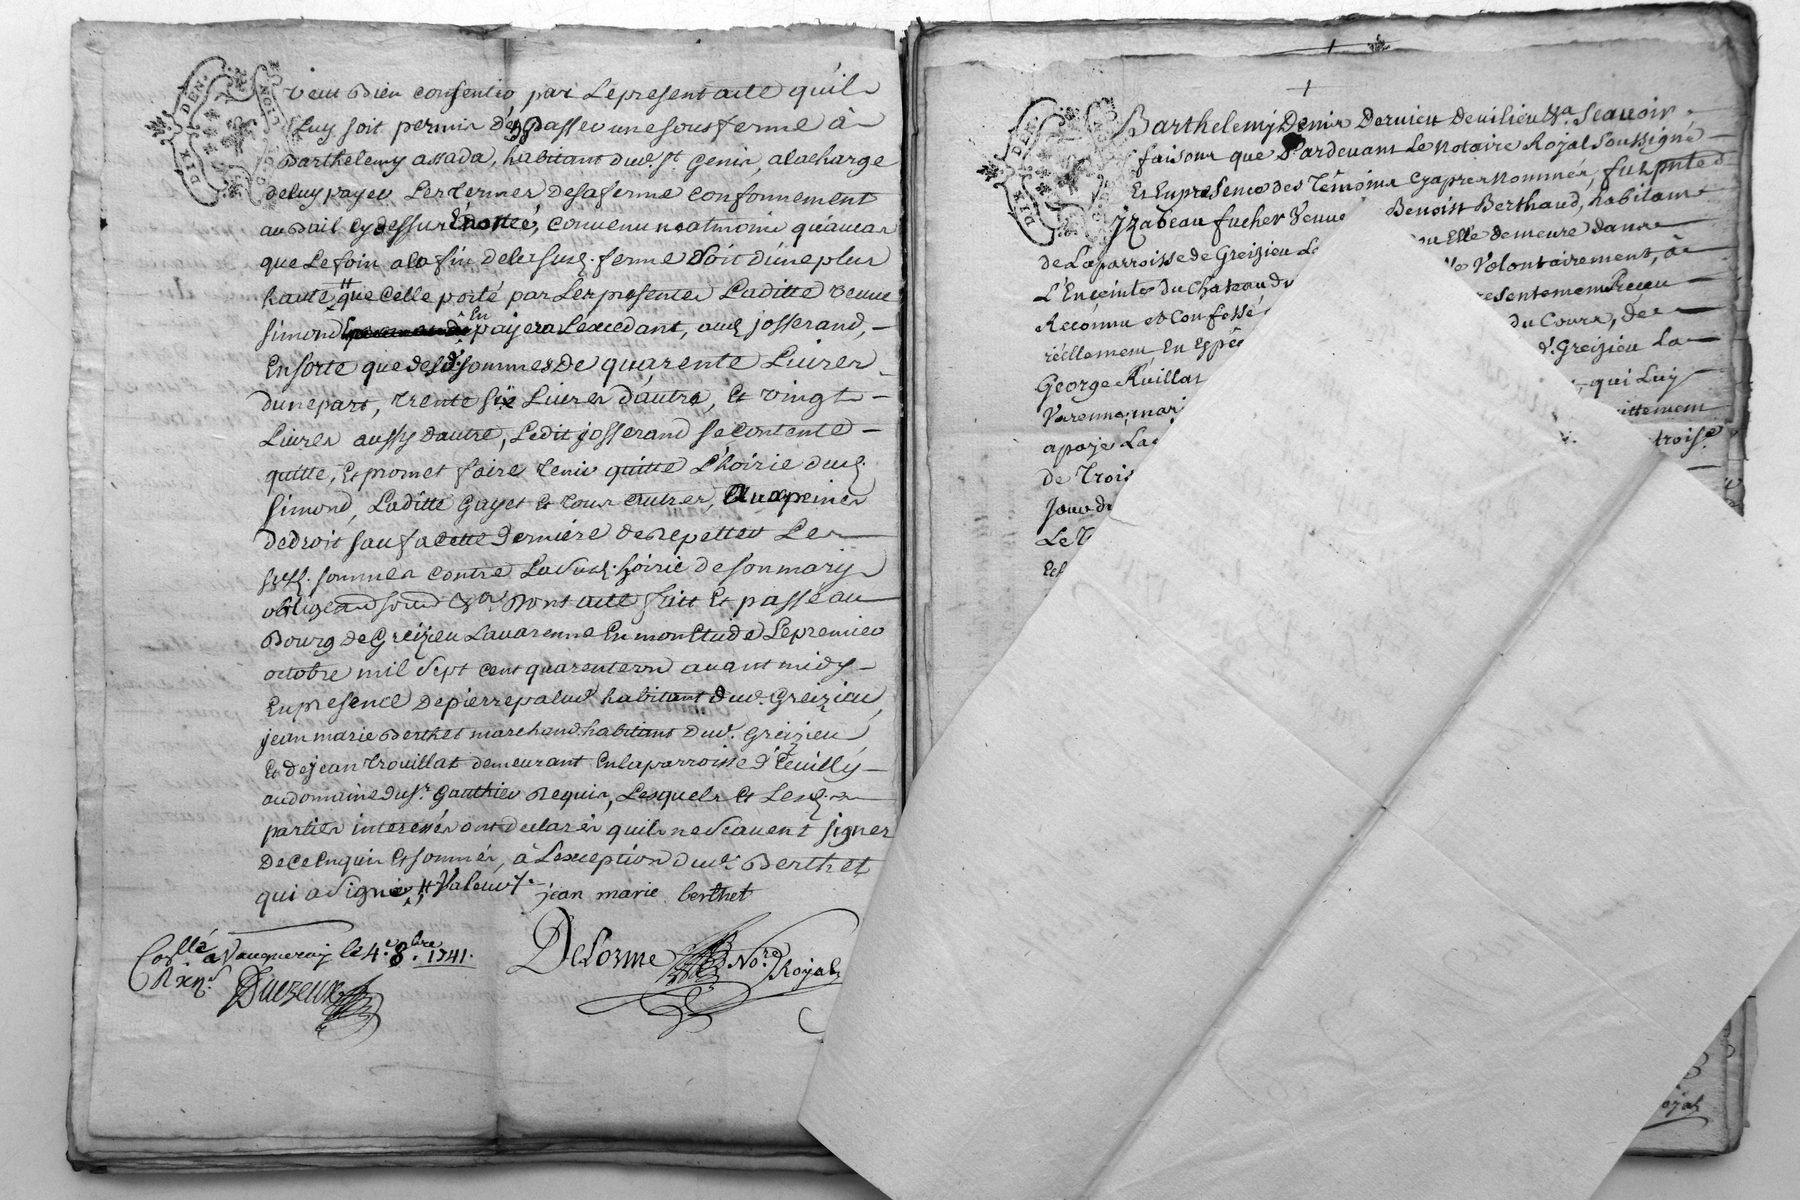 veut bien consentir par le present acte qu'il
luy soit permis de passer une sous ferme à
Barthelemy assada, habitant dud. St Genis, alacharge
deluy payer les termes desaferme conformement
aubail cydessus énoncé, convenu neatmoins
que lefoin ala fin delasusd. ferme doit
haute que celle porté par les presentes Laditte veuve
simond En payera Lexcedant, aud josserand,
Ensorte que desd. sommes De quarente Livres
dunepart, trente six Livres d'autre, Et vingt
Livres aussy dautre, Ledit josserand se contente
quitte, Et promet faire tenir quitte L'hoirie dud.
simond, Laditte Gayet Et tous autres, aux peines
dedroit sauf acette derniére derepetter Les
susd. sommes contre Lasusd. hoirie desonmary
obligeand soumd &a Dont acte fait Et passé au
Bourg de Greizieu Lavarenne En mon Etude Lepremier
octobre mil sept cent quarenteun avant midy
En presence Depierre palud habitant dud. Greizieu,
jean marie Berthet marchand habitant Dud. Greizieu
Et dejean trouillat demeurant Enlaparroisse d'Eeuilly
audomaine dusr. Gauthier Lesquels Et Lesd.
parties interessés ont declarés quils ne scavent signer
De ce Enquis Et sommés, à Lexception dud. Berthet
qui a signé
jean marie berthet
Collé a Vaugneray le 4e. 8bre 1741.
DeLorme Nore. Royal
DIX DEN.
Barthelemy Denis Dervieu Devilieu &a. Scavoir
faisons que Pardevant Le Notaire Royal Soussigné
Et Enpresence des Témoins Cyapres Nommés, fut pnte
Izabeau fucher Veuve Benoist Berthaud, habitante
deLaparroisse de Greizieu La ou Elle demeure dans
L'Enceinte du Chateau du Volontairement, à
Reconnu et Confessé presentement Reçeu
réellement En Espé du Cours, de
George Ruillat d. Greizieu La
Varenne, mari qui Luy
apayé La
de Trois
Jour du
DIX DEN.